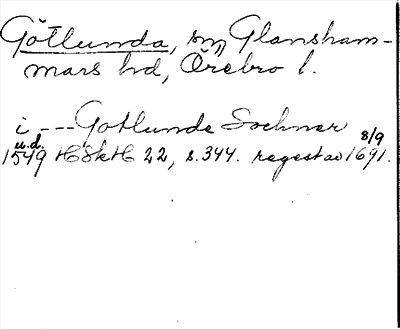 Götlunda, sn, Glansham-
mars hd, Örebro l.
i --- Gotlunde Sochner
u.d.
1549 HSkH 22, s. 344. regest av 8/9 1691.